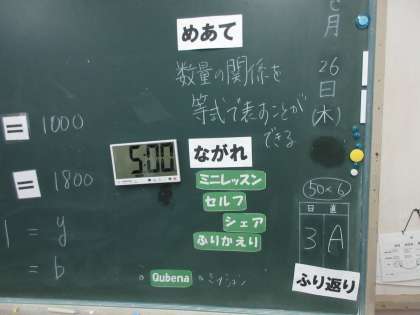 めあて
数量の関係を
等式で表すことが
できる
月
26
日
(木)
= 1000
5:00
ながれ
= 1800
ミニレッスン
セルフ
シェア
ふりかえり
50×6
日直
3 A
1 = y
= b
Qubena
ふり返り